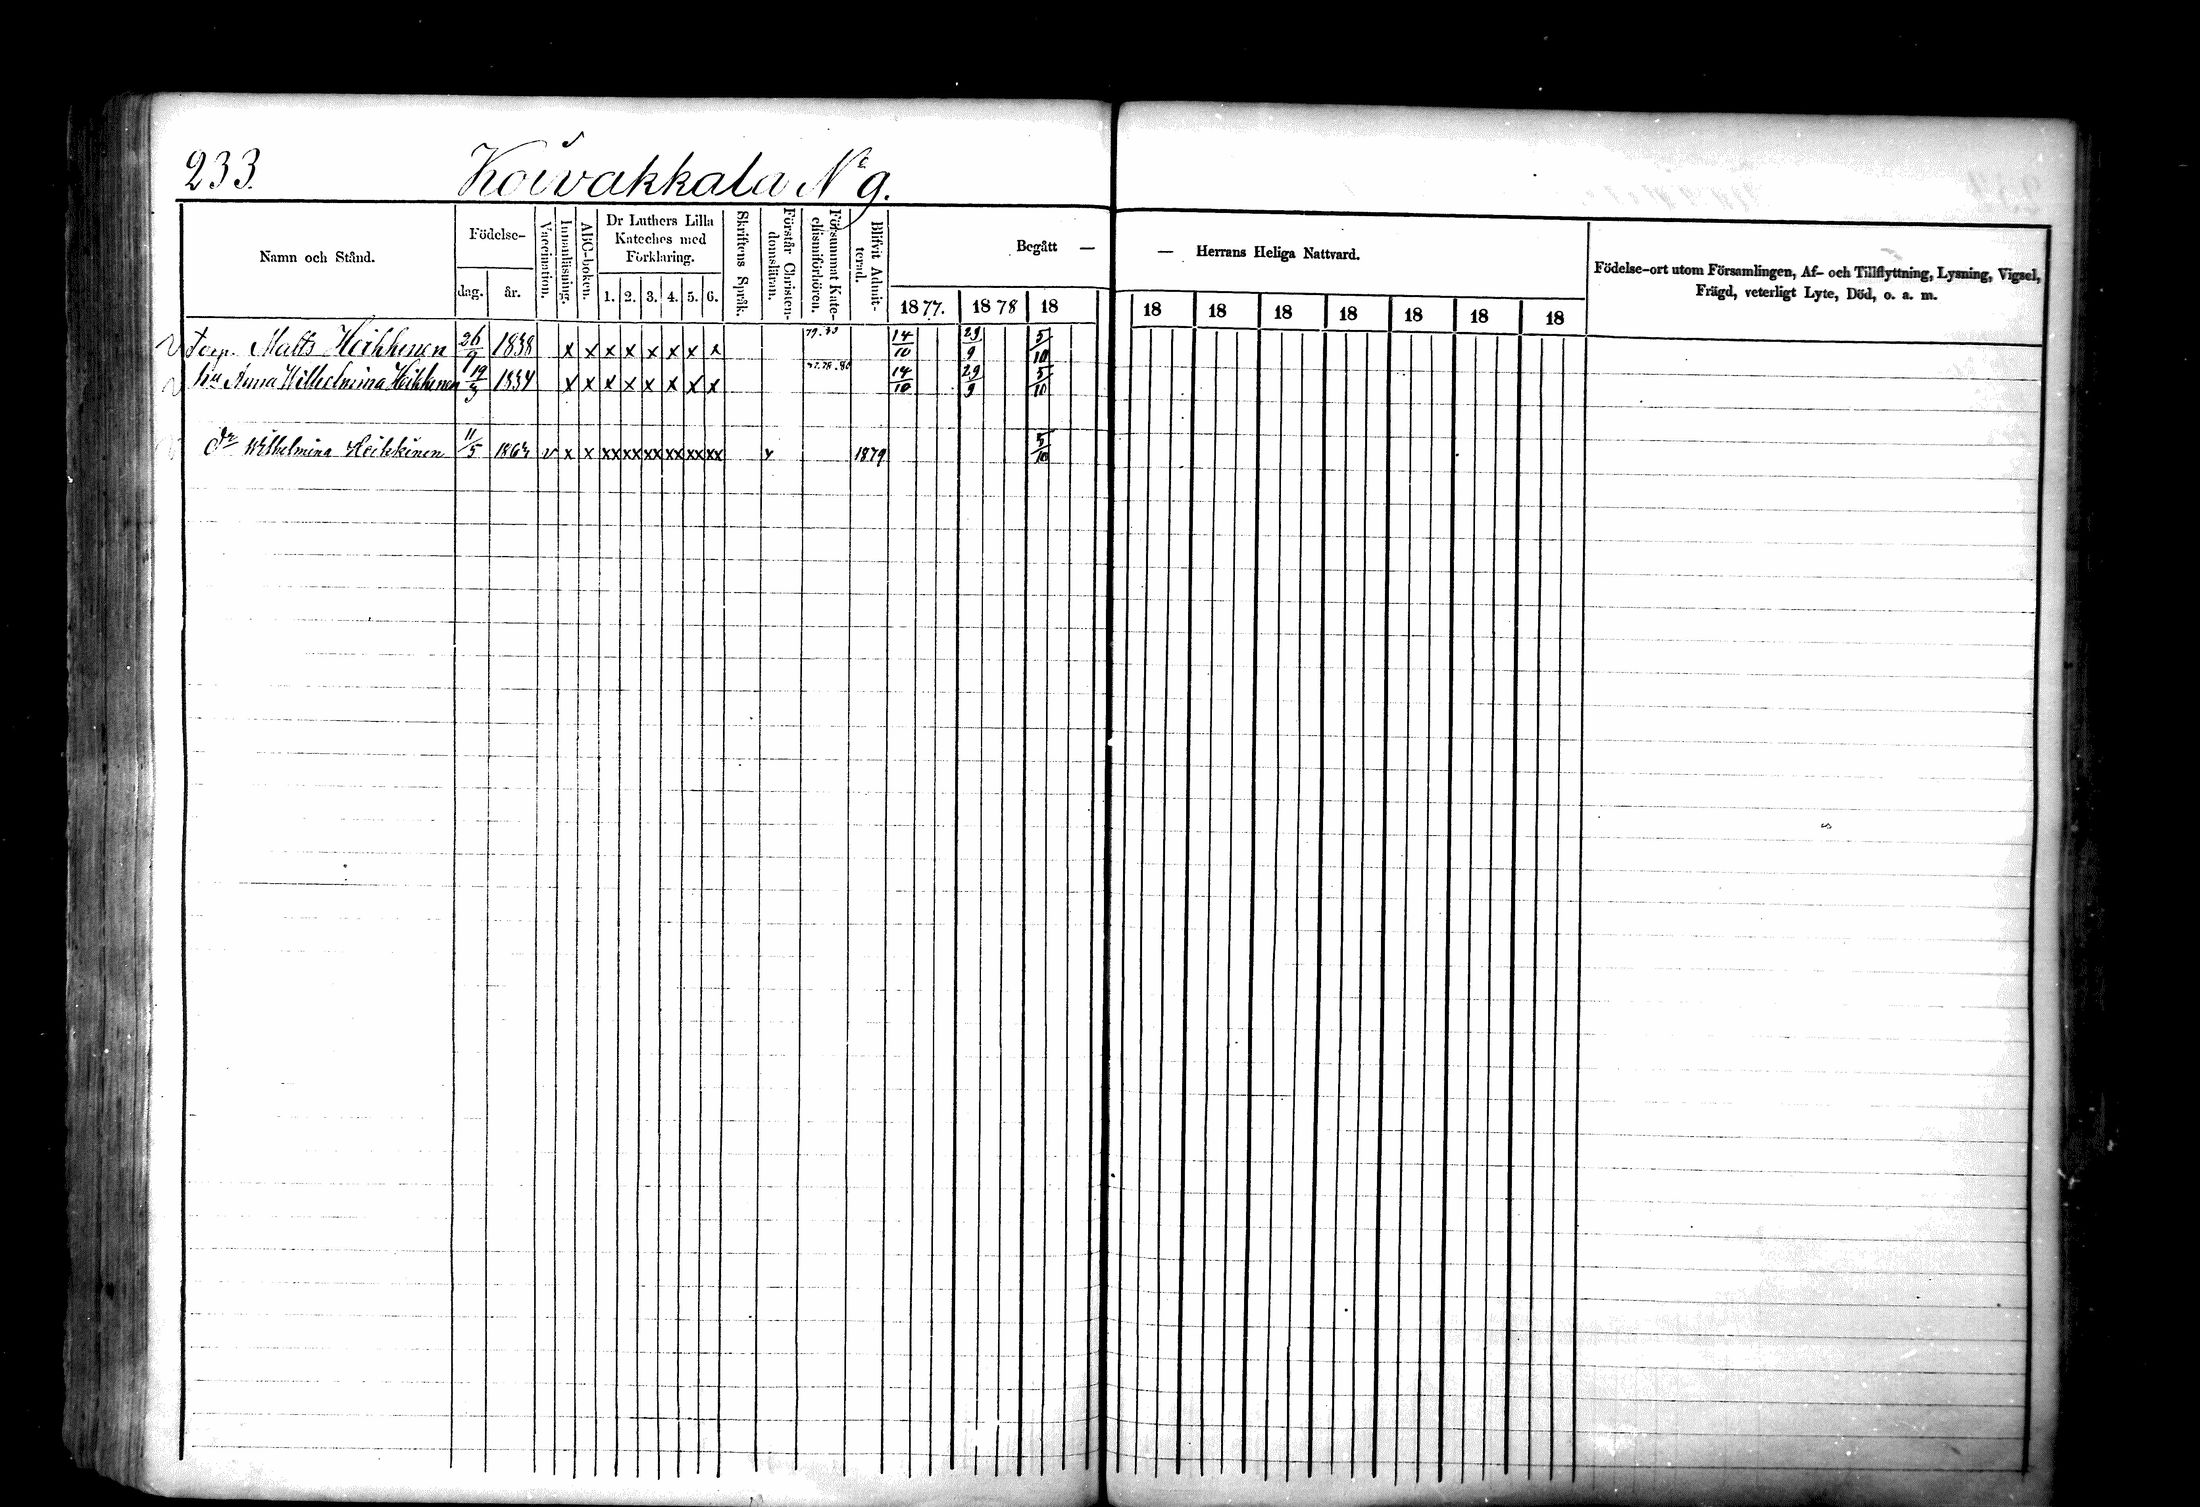 233. Koivakkala N:o 9.
Namn och Stånd. Födelse- dag. år. Vaccination. Innanläsning. ABC-boken. Dr Luthers Lilla Kateches med Förklaring. 1. 2. 3. 4. 5. 6. Skriftens Språk. Förstår Christendomsläran. Försummat Katechismiförhören. Blifvit Admitterad. Begått — — Herrans Heliga Nattvard. Födelse-ort utom Församlingen, Af- och Tillflyttning, Lysning, Vigsel, Frägd, veterligt Lyte, Död, o. a. m.
1877. 1878 18 18 18 18 18 18 18 18
v Torp. Matts Heikkinen 26/9 1838 x x x x x x x x 14/10 29/9 5/10
v hu Anna Wilhelmina Heikkinen 19/3 1834 x x x x x x x x 14/10 29/9 5/10
dr Wilhelmina Heikkinen 11/5 1863 v x x xx xx xx xx xx xx x 1879 5/10